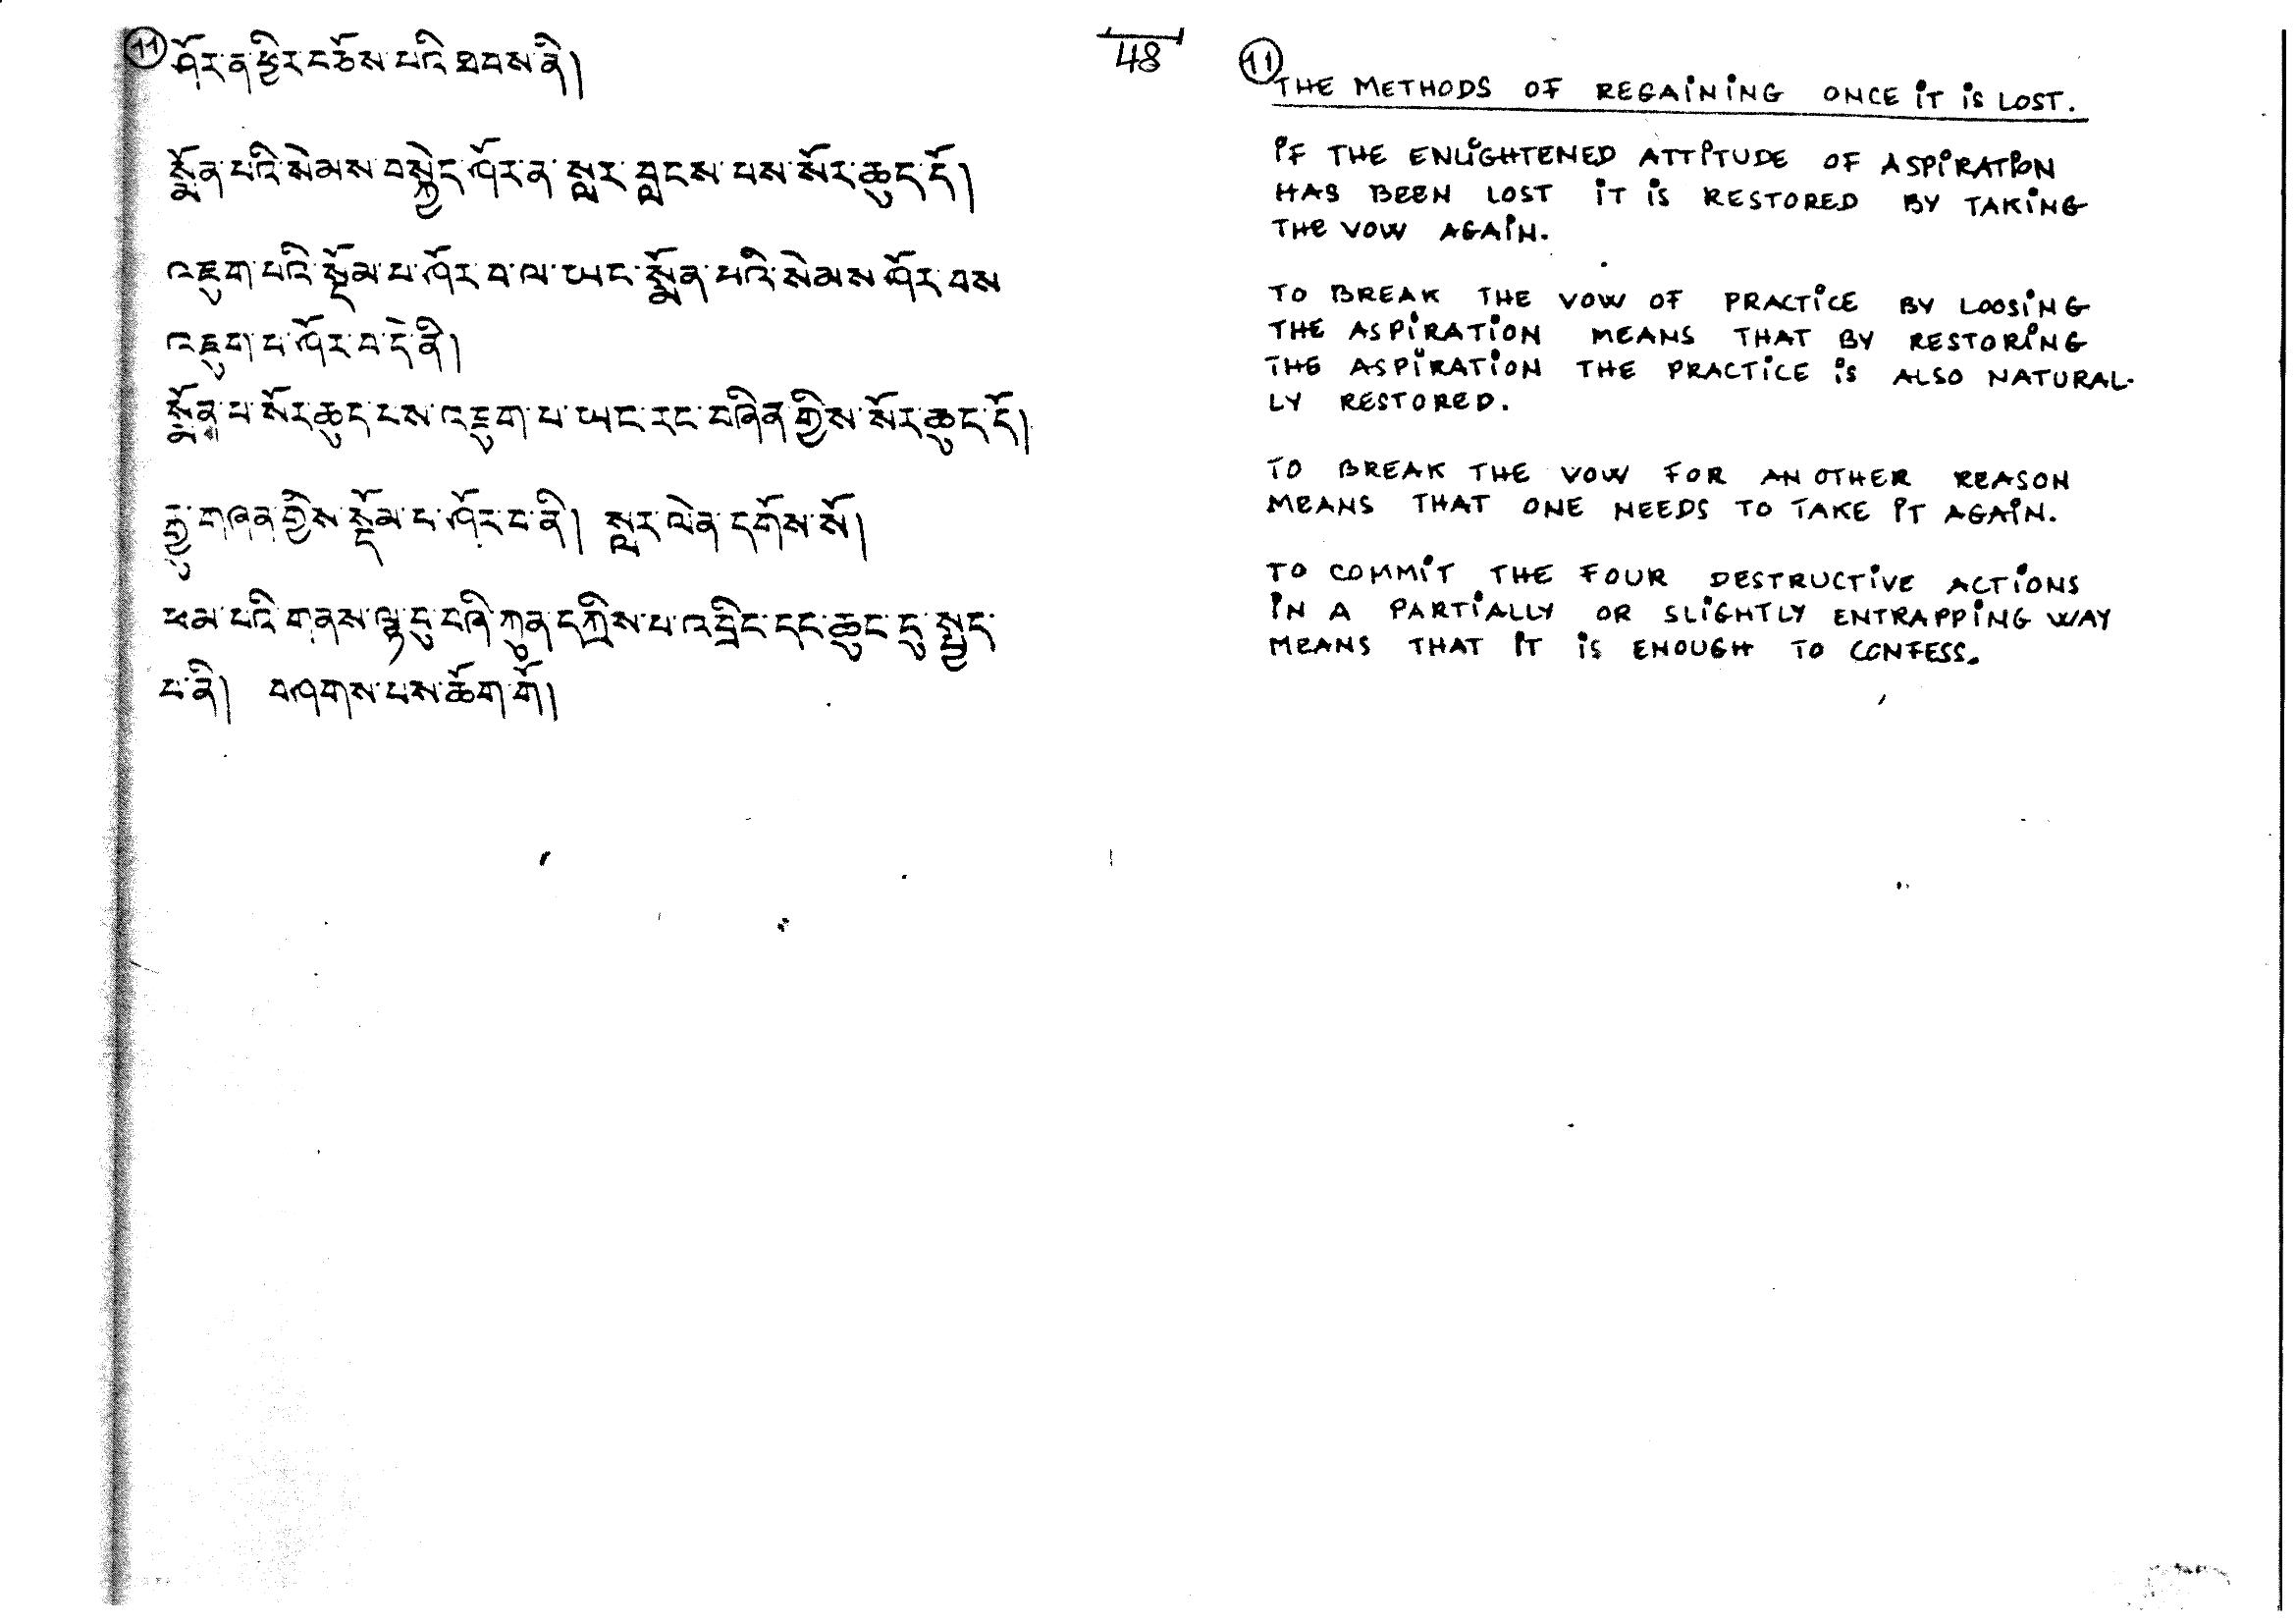 11 ཤོར་ན་ཕྱིར་བཅོས་པའི་ཐབས་ནི།
སྨོན་པའི་སེམས་བསྐྱེད་ཤོར་ན་སླར་བླངས་པས་སོར་ཆུད་དོ།
འཇུག་པའི་སྡོམ་པ་ཤོར་བ་ལ་ཡང་སྨོན་པའི་སེམས་ཤོར་བས
འཇུག་པ་ཤོར་བ་དེ་ནི།
སྨོན་པ་སོར་ཆུད་པས་འཇུག་པ་ཡང་རང་བཞིན་གྱིས་སོར་ཆུད་དོ།
རྒྱུ་གཞན་གྱིས་སྡོམ་པ་ཤོར་བ་ནི། སླར་ལེན་དགོས་སོ།
ཕམ་པའི་གནས་ལྟ་བུ་བཞི་ཀུན་དཀྲིས་པ་འབྲིང་དང་ཆུང་ངུ་སྤྱད་
པ་ནི། བཤགས་པས་ཆོག་གོ།
48
11 THE METHODS OF REGAINING ONCE IT IS LOST.
IF THE ENLIGHTENED ATTITUDE OF ASPIRATION
HAS BEEN LOST IT IS RESTORED BY TAKING
THE VOW AGAIN.
TO BREAK THE VOW OF PRACTICE BY LOOSING
THE ASPIRATION MEANS THAT BY RESTORING
THE ASPIRATION THE PRACTICE IS ALSO NATURAL-
LY RESTORED.
TO BREAK THE VOW FOR AN OTHER REASON
MEANS THAT ONE NEEDS TO TAKE IT AGAIN.
TO COMMIT THE FOUR DESTRUCTIVE ACTIONS
IN A PARTIALLY OR SLIGHTLY ENTRAPPING WAY
MEANS THAT IT IS ENOUGH TO CONFESS.